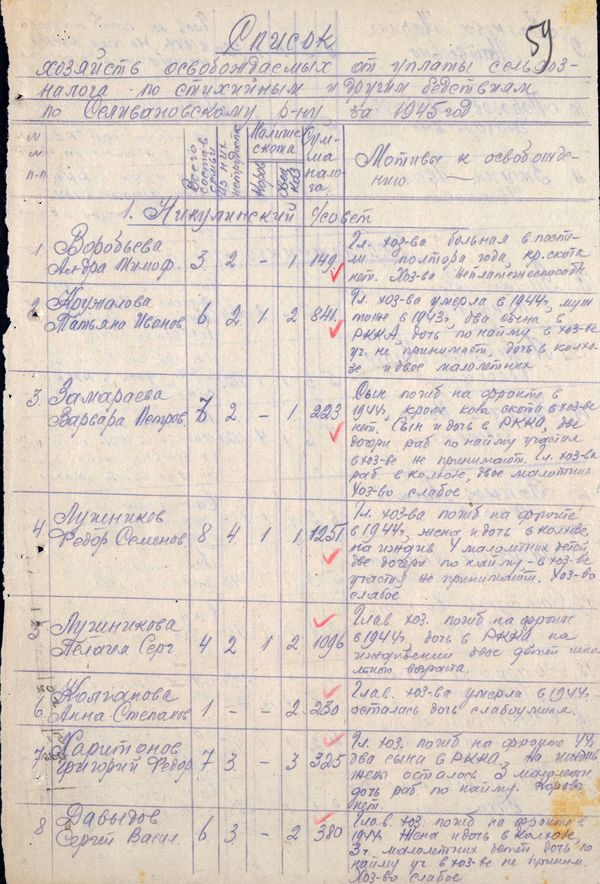 59
Список
хозяйств освобождаемых от уплаты сельхоз-
налога по стихийным и другим бедствиям
по Селивановскому р-ну за 1945 год
N N п.п
Всего состав семьи
из них нетрудоспос.
Наличие скота
Коров
Овец коз
Сумма налога
Мотивы к освобождению
1. Никулинский с/совет
1 Воробьева
Ал-дра Тимоф. 3 2 - 1 149
Гл. хоз-ва больная в посте-
ли полтора года, кр. скота
нет. Хоз-ва неплатежеспособн
2 Кружалова
Татьяна Иванов 6 2 1 2 841
Гл. хоз-ва умерла в 1944г, муж
тоже в 1943г, два сына в
РККА, дочь по найму, в хоз-ве
уч. не принимает, дочь в колхо-
зе, и двое малолетних
3 Замараева
Варвара Петров. 7 2 - 1 223
Сын погиб на фронте в
1944г, кроме коз скота в хоз-ве
нет. Сын и дочь в РККА, две
дочери раб по найму участия
в хоз-ве не принимают. Гл. хоз-ва
раб. в колхозе, двое малолетних
Хоз-во слабое
4 Лушников
Федор Семенов 8 4 1 1 1251
Гл. хоз-ва погиб на фронте
в 1944г, жена и дочь в колхозе,
на иждив 4 малолетних детей,
две дочери по найму - в хоз-ве
участия не принимают. Хоз-во
слабое
5 Лушникова
Пелагия Серг 4 2 1 2 1096
Глав. хоз. погиб на фронте
в 1944г, дочь в РККА на
иждивении двое детей шко-
льного возраста.
6 Колганова
Анна Степанов 1 - - 2 230
Глав. хоз-ва умерла в 1944г
осталась дочь слабоумная.
7 Харитонов
Григорий Федор 7 3 - 3 325
Гл. хоз. погиб на фронте 44г,
два сына в РККА, на иждив
жены осталось 3 малолетн
дочь раб по найму. Коровы
нет.
8 Давыдов
Сергей Васил. 6 3 - 2 380
Глав. хоз. погиб на фронте в
1944 Жена и дочь в колхозе,
3х малолетних детей дочь по
найму уч в хоз-ве не приним.
Хоз-во слабое